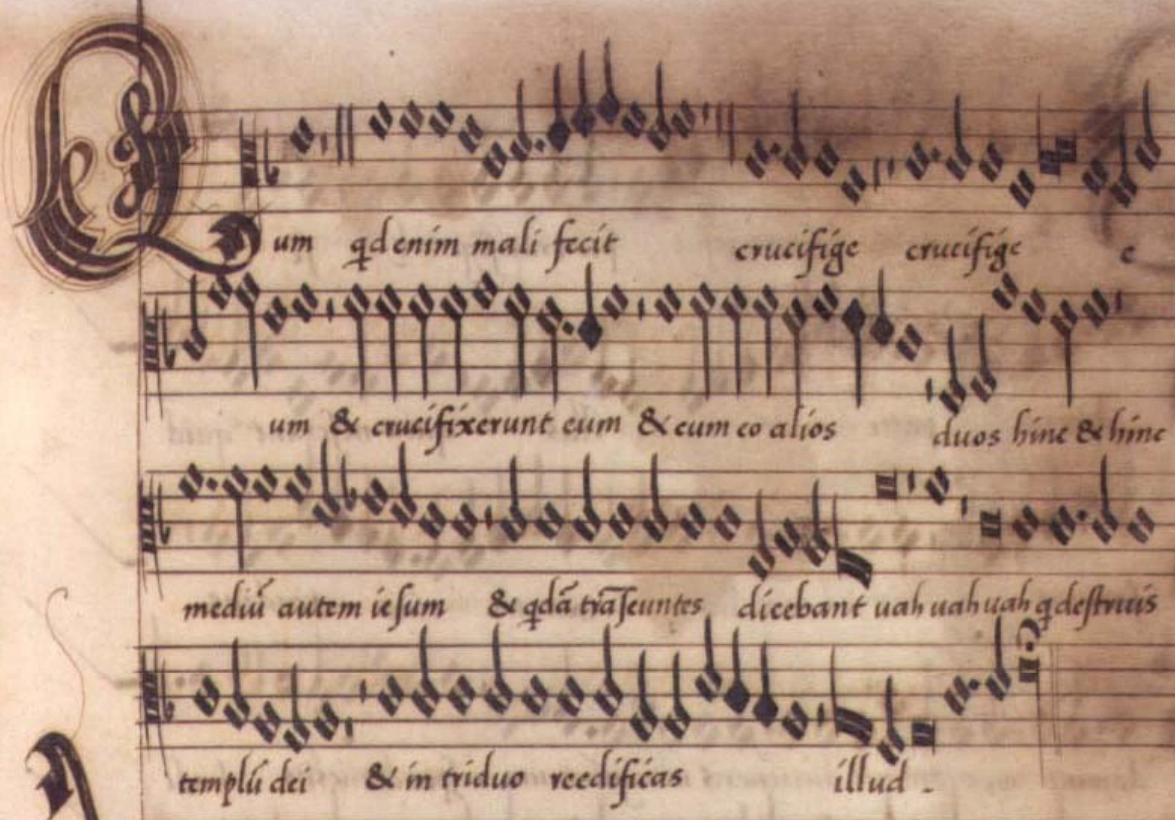 Q um qd enim mali fecit crucifige crucifige e
um & crucifixerunt eum & cum eo alios duos hinc & hinc
mediū autem iesum & qdā trāseuntes dicebant uah uah uah q destruis
templū dei & in triduo reedificas illud